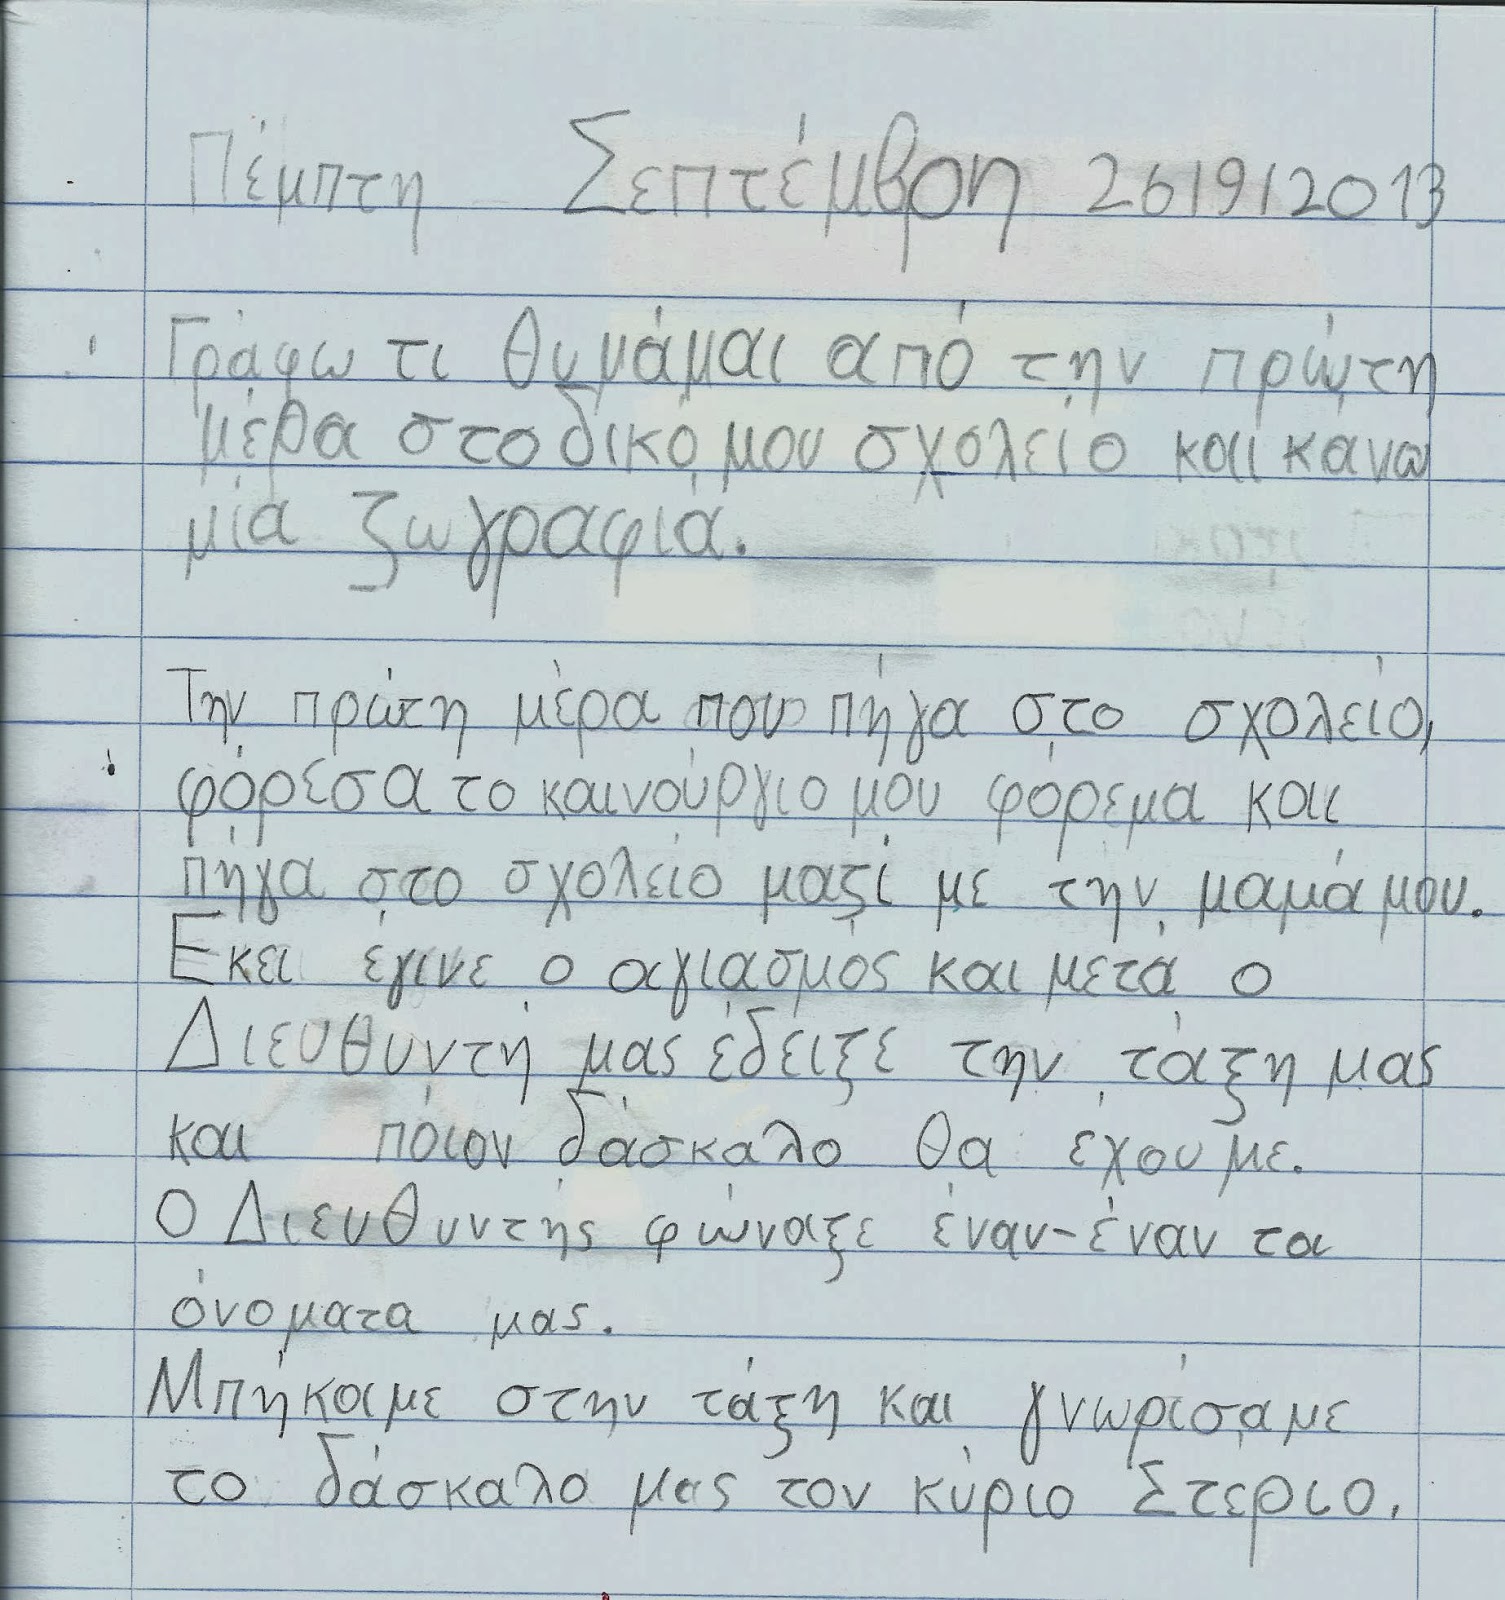 Πέμπτη Σεπτέμβρη 26/9/2013
Γράφω τι θυμάμαι από την πρώτη
μέρα στο δικό μου σχολείο και κανω
μία ζωγραφιά.
Την πρώτη μέρα που πήγα στο σχολείο,
φόρεσα το καινούργιο μου φόρεμα και
πήγα στο σχολείο μαζί με την μαμά μου.
Εκει έγινε ο αγιασμός και μετά ο
Διευθυντή μας έδειξε την τάξη μας
και ποιον δάσκαλο θα έχουμε.
Ο Διευθυντής φώναξε έναν-έναν τα
όνοματα μας.
Μπήκαμε στην τάξη και γνωρίσαμε
το δάσκαλο μας τον κύριο Στέριο.